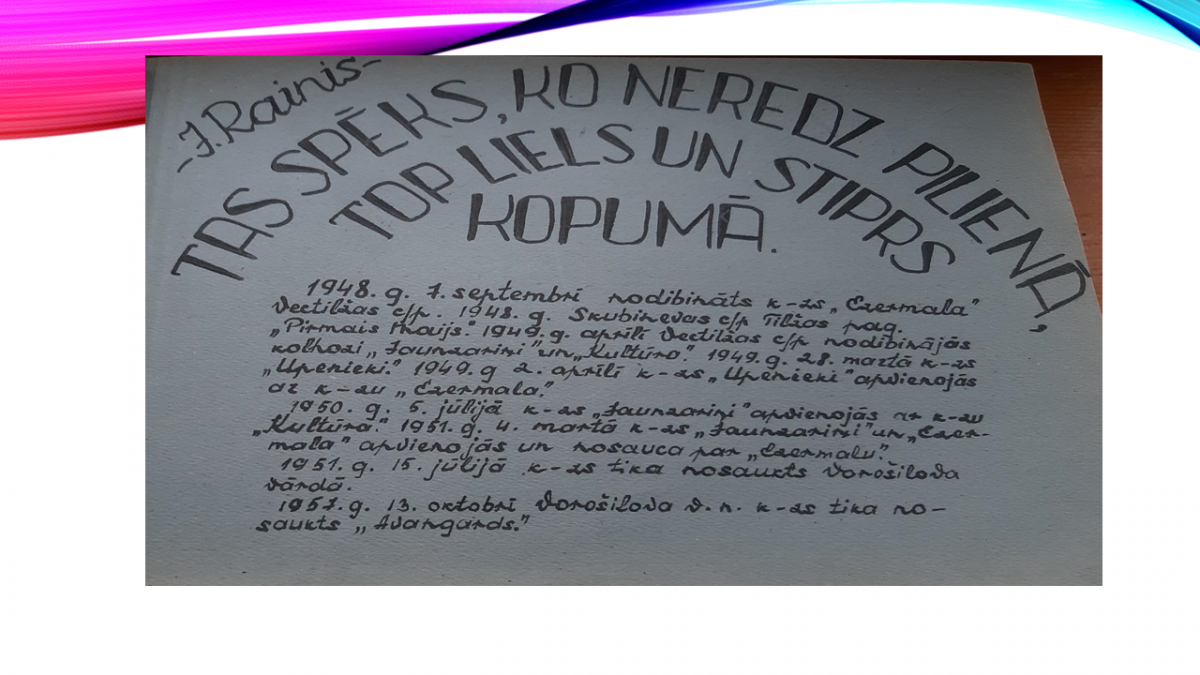 -J.Rainis-
TAS SPĒKS, KO NEREDZ PILIENĀ,
TOP LIELS UN STIPRS
KOPUMĀ.
1948. g. 7. septembrī nodibināts k-zs „Ezermala"
Vectilžas c/p. 1948. g. Skubinevas c/p Tilžas pag.
„Pirmais Maijs." 1949. g. aprīlī Vectilžas c/p nodibinājās
kolhozi „Jaunzariņi" un „Kultūra." 1949. g. 28. martā k-zs
„Upenieki." 1949. g 2. aprīlī k-zs „Upenieki" apvienojās
ar k-zu „Ezermala."
1950. g. 5. jūlijā k-zs „Jaunzariņi" apvienojās ar k-zu
„Kultūra." 1951. g. 4. martā k-zs „Jaunzariņi" un „Ezer-
mala" apvienojās un nosauca par „Ezermalu."
1951. g. 15. jūlijā k-zs tika nosaukts Vorošilova
vārdā.
1957. g. 13. oktobrī Vorošilova v. n. k-zs tika no-
saukts „Avangards."